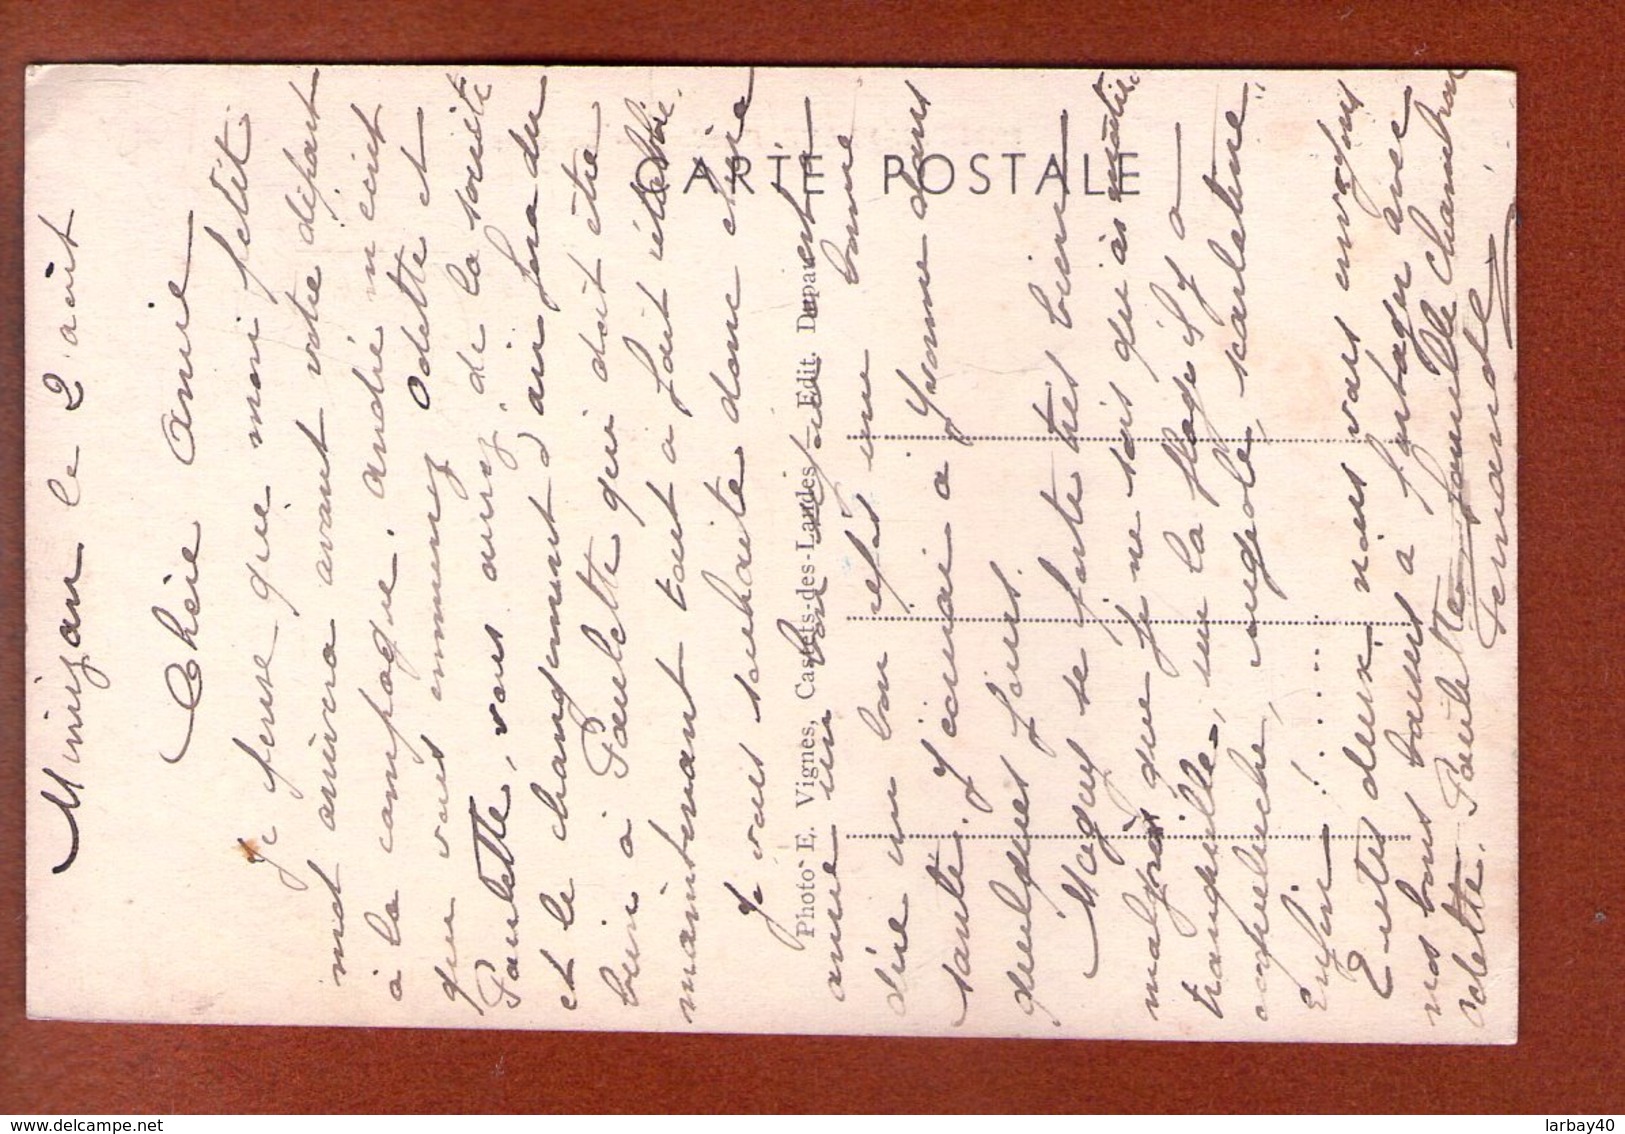 Mimizan le 2 août
Chère Amie
Je pense que mon petit
mot arrivera avant votre départ
à la campagne. André m'écrit
que vous emmenez Odette et
Paulette, vous aurez de la société
et le changement d'air fera du
bien à Paulette qui doit être
maintenant tout à fait rétablie.
Je vous souhaite donc chère
amie un bon séjour
un bon repos une bonne
santé. J'écrirai à Yvonne dans
quelques jours.
Maguy se porte très bien
malgré que je ne sois que à moitié
tranquille, sur la plage il y a
coqueluche, rougeole, scarlatine,
Enfin! .......
E nous deux nous vous envoyons
nos bons baisers à partager avec
Odette. Paulette famille Chambran
Fernande
CARTE POSTALE
Photo E. Vignes, Castets-des-Landes - Edit. Dupau
delcampe.net
larbay40